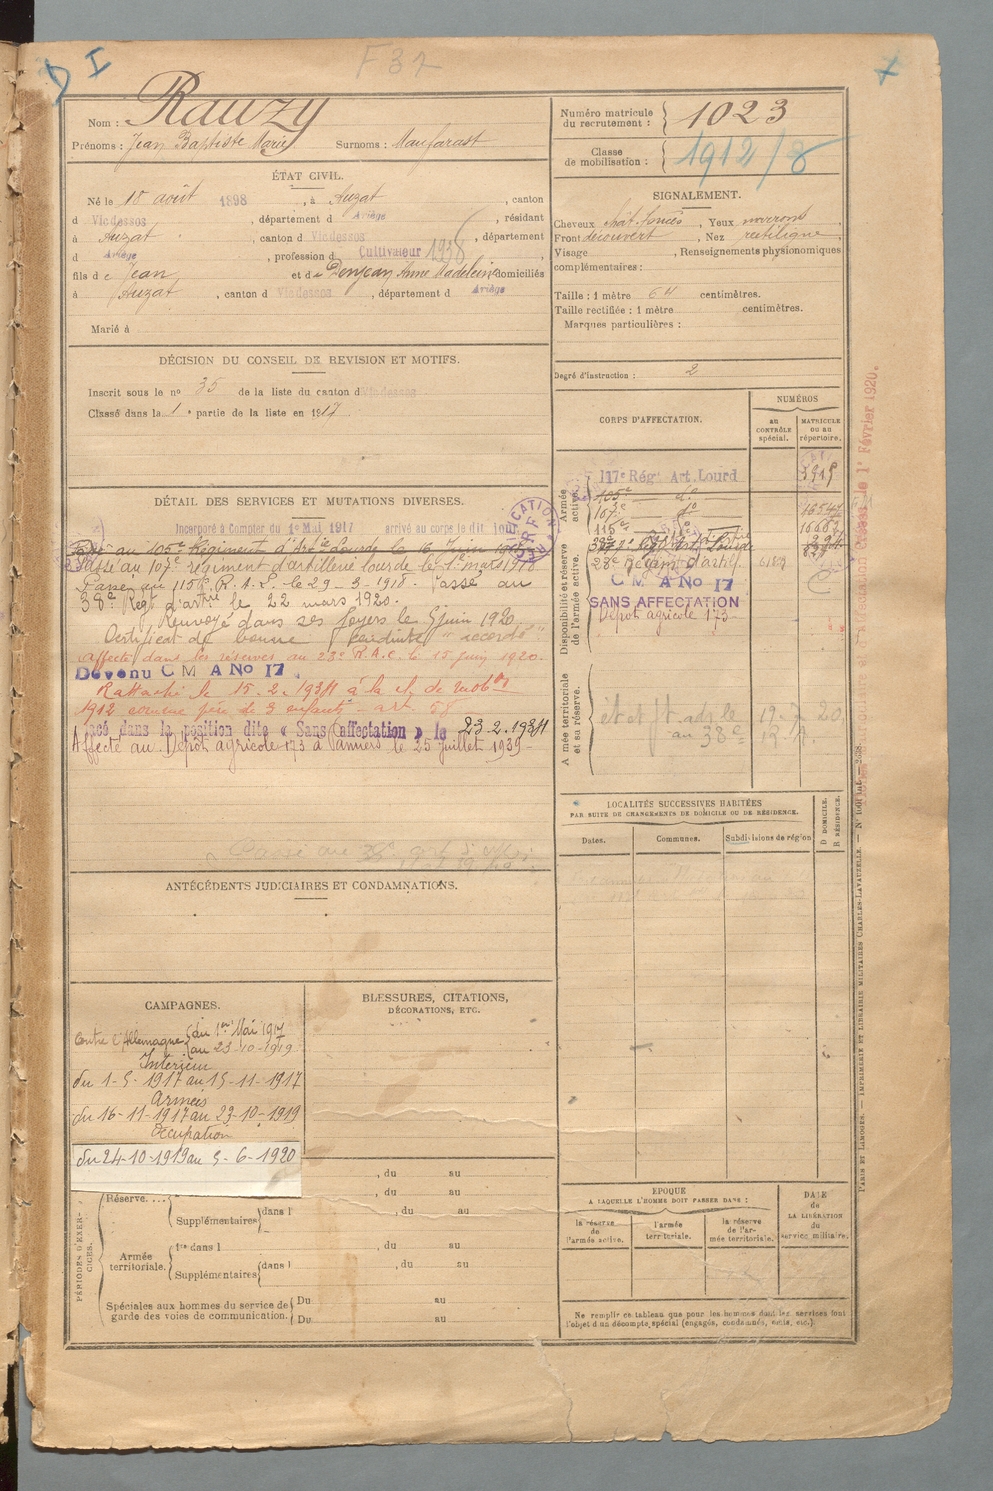 F 32
Nom : Rauzy
Prénoms : Jean Baptiste Marie Surnoms :
Numéro matricule du recrutement : 1023
Classe de mobilisation : 1912/8
ÉTAT CIVIL.
Né le 18 août 1898, à Auzat, canton
d Vicdessos, département d Ariège, résidant
à Auzat, canton d Vicdessos, département
d Ariège, profession d Cultivateur 1938
fils de Jean et de Denjean Anne Madeleine domiciliés
à Auzat, canton d Vicdessos, département d Ariège
Marié à
SIGNALEMENT.
Cheveux chât. foncés, Yeux marrons
Front découvert, Nez rectiligne
Visage , Renseignements physionomiques
complémentaires :
Taille : 1 mètre 64 centimètres.
Taille rectifiée : 1 mètre centimètres.
Marques particulières :
Degré d'instruction : 2
DÉCISION DU CONSEIL DE REVISION ET MOTIFS.
Inscrit sous le nº 35 de la liste du canton d Vicdessos
Classé dans la 1e partie de la liste en 1917
DÉTAIL DES SERVICES ET MUTATIONS DIVERSES.
Incorporé à Compter du 1er Mai 1917 arrivé au corps le dit jour
Passé au 105e Régiment d'Artie Lourde le 16 Juin
Passé au 107e régiment d'artillerie lourde le 1er mars 1918
Passé au 115e R. A. L. le 29-3-1918. Passé au
38e Régt d'artie le 22 mars 1920.
Renvoyé dans ses foyers le 5 juin 1920.
Certificat de bonne conduite "accordé"
Affecté dans les réserves au 23e R.A.C. le 15 juin 1920.
Devenu C M A No 17
Rattaché le 15.2.1934 à la cl. de mobon
1912 comme père de 3 enfants - art. 58
Placé dans la position dite « Sans affectation » le 23-2-1934
Affecté au Dépôt agricole 173 à Pamiers le 25 juillet 1939
CORPS D'AFFECTATION.
NUMÉROS
au CONTRÔLE spécial.
MATRICULE ou au répertoire.
Armée active.
117e Régt Art. Lourd 3919
105e do
107e do
115e do
Disponibilité et réserve de l'armée active.
23e Régim d'artie
C M A No 17
SANS AFFECTATION
Dépôt agricole 173
Armée territoriale et sa réserve.
LOCALITÉS SUCCESSIVES HABITÉES
PAR SUITE DE CHANGEMENTS DE DOMICILE OU DE RÉSIDENCE.
Dates.
Communes.
Subdivisions de région
D DOMICILE.
R RÉSIDENCE.
ANTÉCÉDENTS JUDICIAIRES ET CONDAMNATIONS.
CAMPAGNES.
Contre l'Allemagne du 1er Mai 1917
au 23-10-1919
Intérieur
du 1-5-1917 au 15-11-1917
Armées
du 16-11-1917 au 23-10-1919
Occupation
du 24-10-1919 au 5-6-1920
BLESSURES, CITATIONS,
DÉCORATIONS, ETC.
PÉRIODES D'EXERCICES.
Réserve.... , du au
Supplémentaires dans l , du au
Armée territoriale.
1re dans l , du au
Supplémentaires dans l , du au
Spéciales aux hommes du service de garde des voies de communication.
Du au
Du au
ÉPOQUE
A LAQUELLE L'HOMME DOIT PASSER DANS :
la réserve de l'armée active.
l'armée territoriale.
la réserve de l'armée territoriale.
DATE de LA LIBÉRATION du service militaire.
Ne remplir ce tableau que pour les hommes dont les services font
l'objet d'un décompte spécial (engagés, condamnés, omis, etc.).
PARIS ET LIMOGES. — IMPRIMERIE ET LIBRAIRIE MILITAIRES CHARLES-LAVAUZELLE.